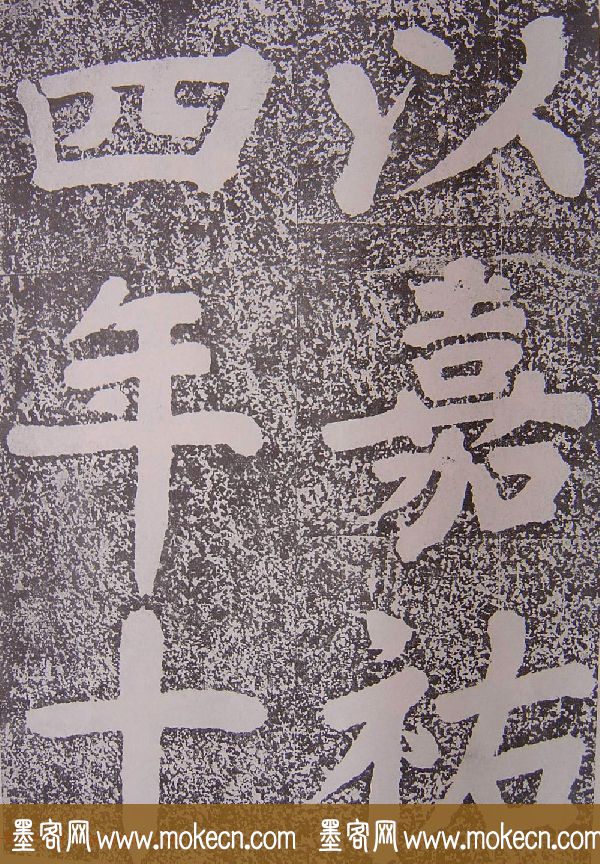 以嘉祐
四年十
墨客网 www.mokecn.com 墨客网 www.mokecn.com